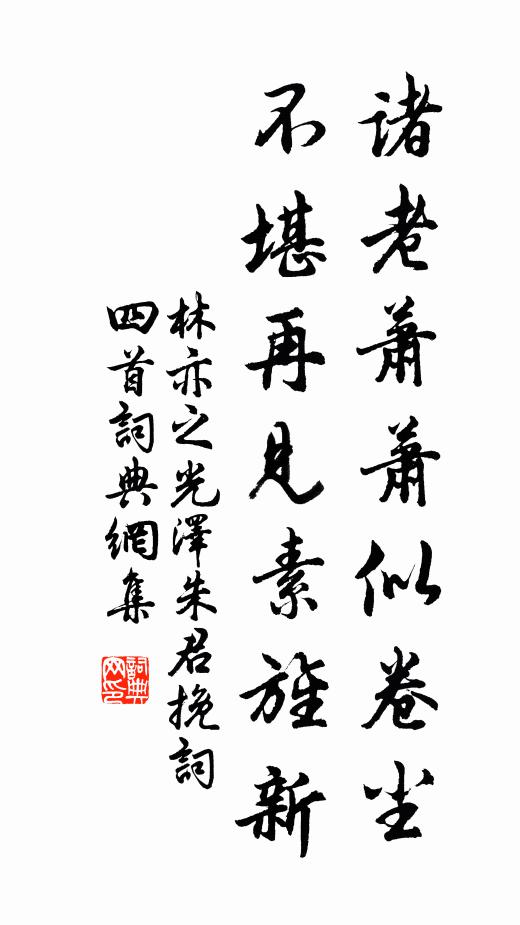 諸老蕭蕭似卷尘
不堪再見素旌新
林亦之光澤朱君挽詞
四首詞典網集
詞典
网印